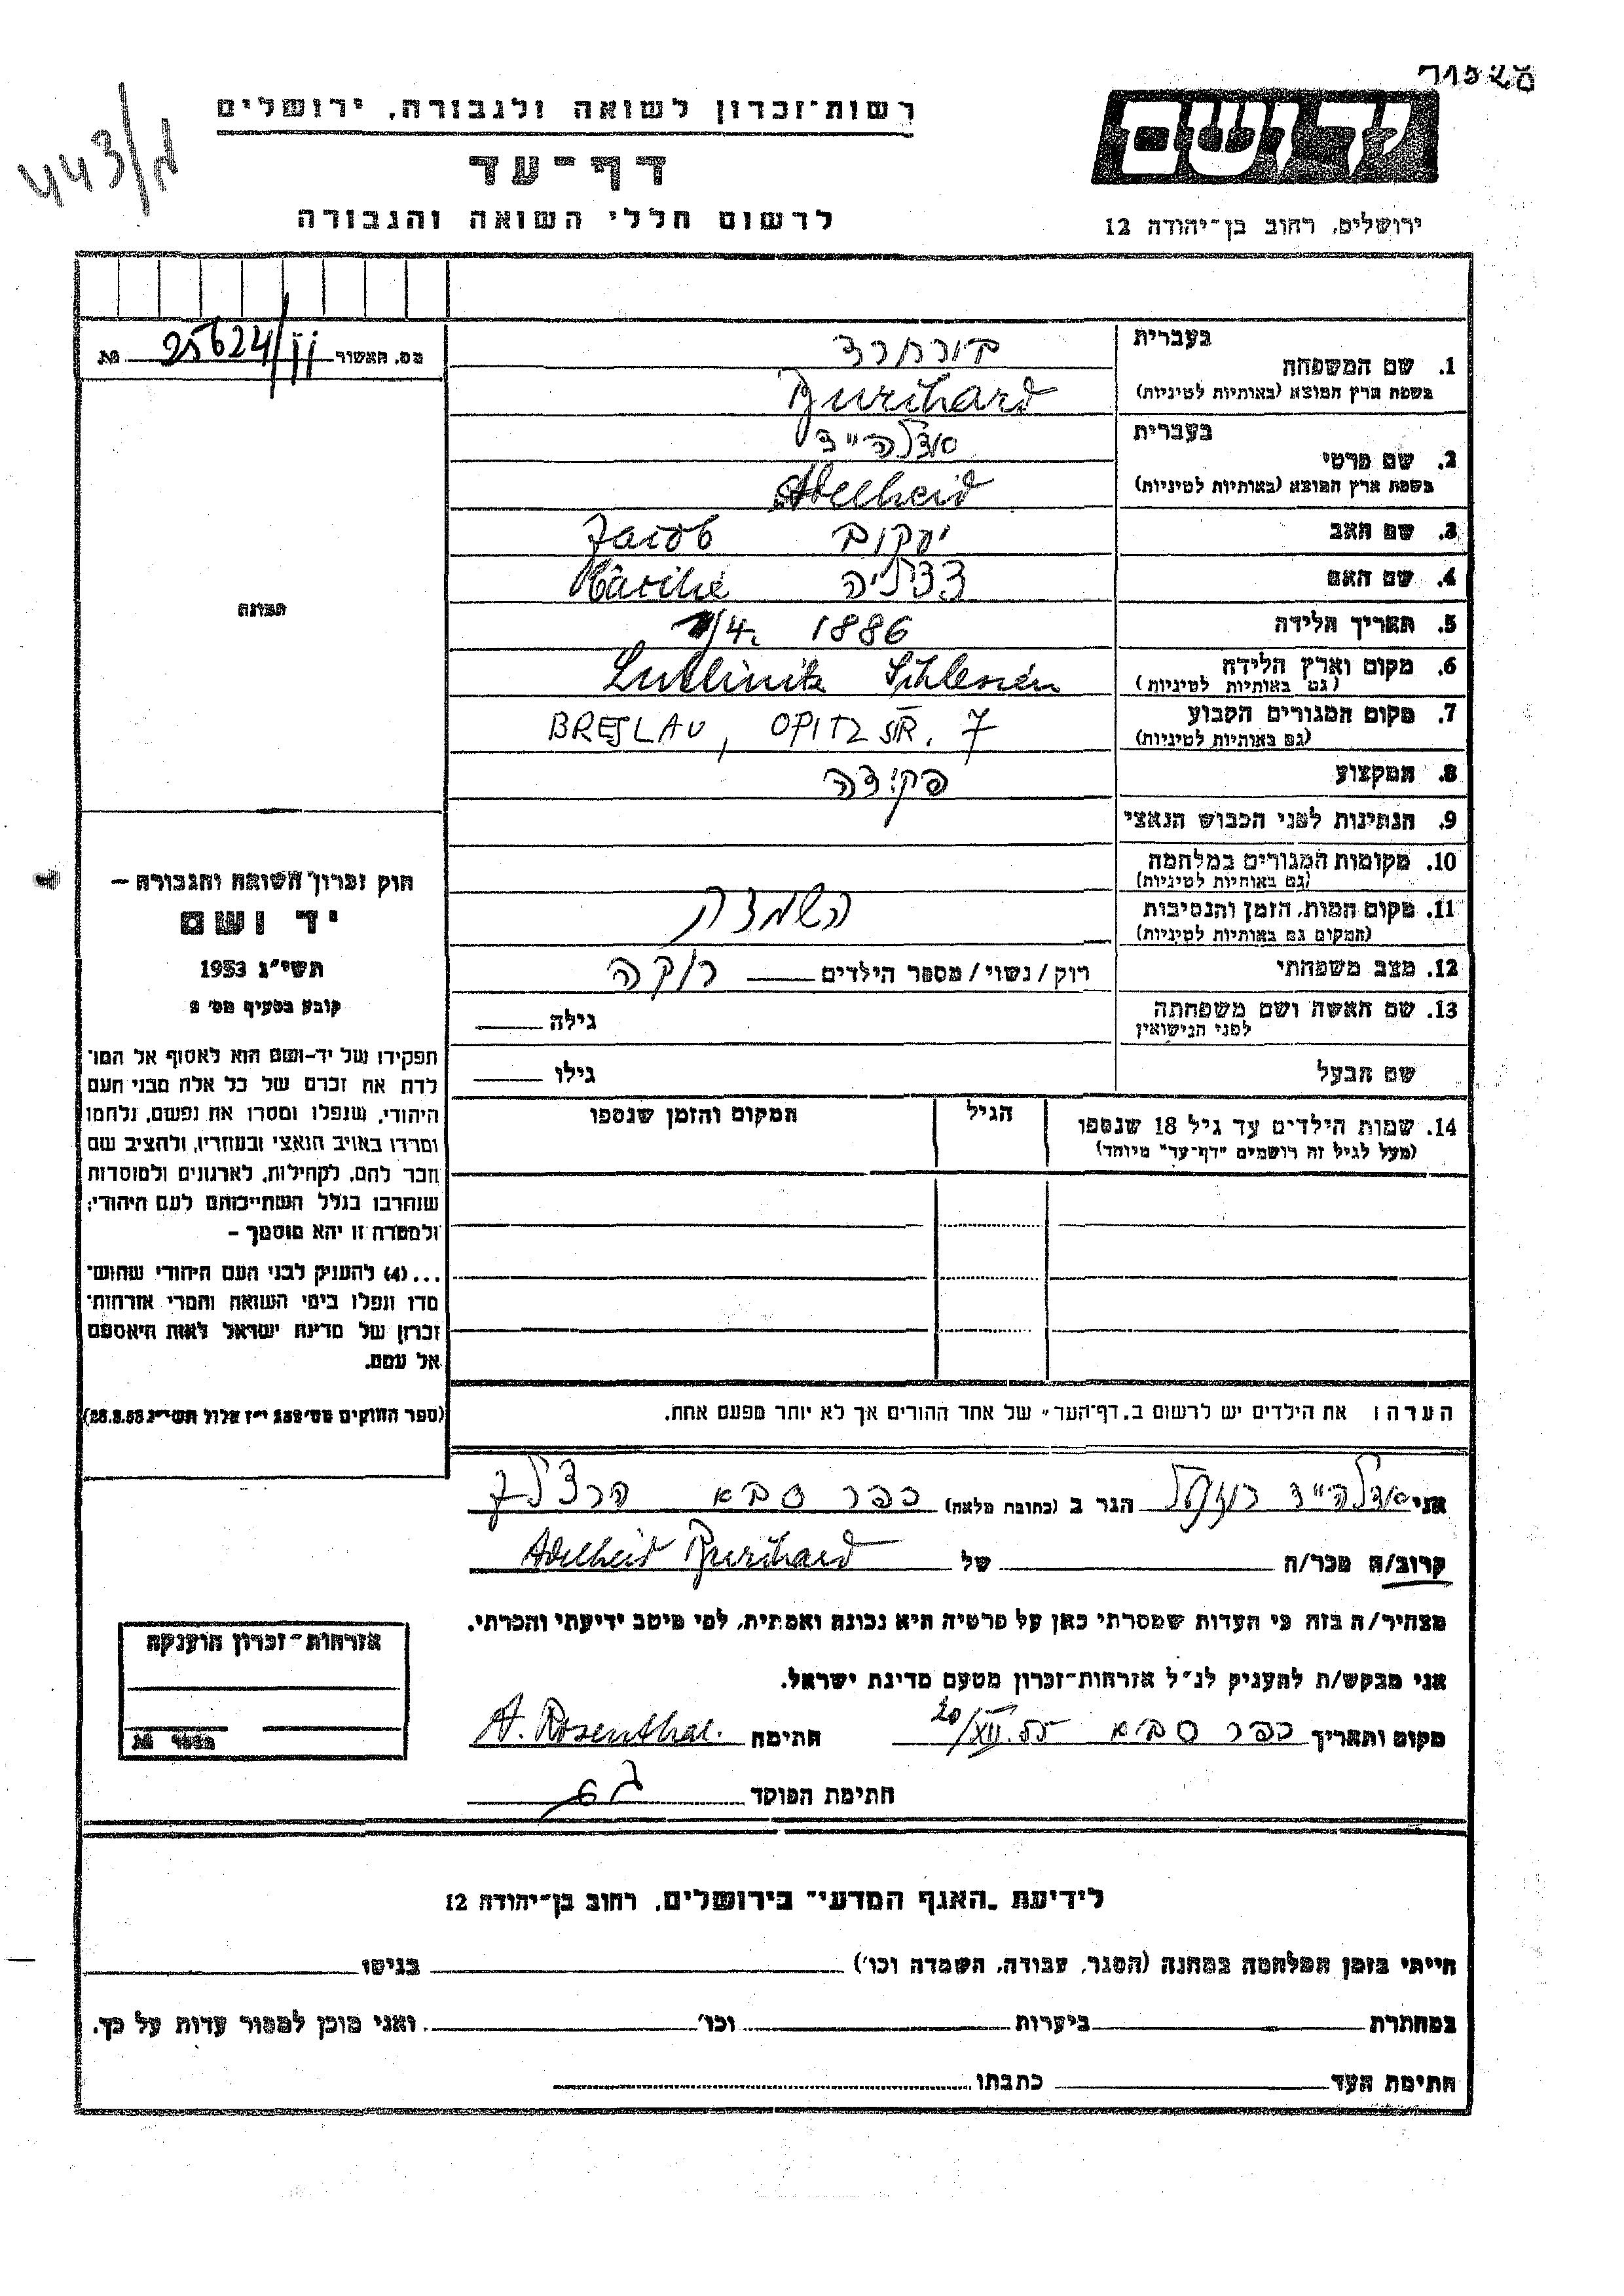 יד ושם
ירושלים, רחוב בן־יהודה 12
רשות־זכרון לשואה ולגבורה, ירושלים
דף־עד
לרשום חללי השואה והגבורה
443/
מס. האשור 25624/יי מת
בעברית
1. שם המשפחה בורחרד
בשפת ארץ המוצא (באותיות לטיניות) Burchard
בעברית
2. שם פרטי אדלהייד
בשפת ארץ המוצא (באותיות לטיניות) Adelheid
3. שם האב יעקוב Jacob
4. שם האם Cäcilie
5. תאריך הלידה /4. 1886
6. מקום וארץ הלידה Lublinitz Schlesien
(גם באותיות לטיניות)
7. מקום המגורים הקבוע BRESLAU, OPITZSTR. 7
(גם באותיות לטיניות)
8. המקצוע פקידה
9. הנתינות לפני הכבוש הנאצי
10. מקומות המגורים במלחמה
(גם באותיות לטיניות)
11. מקום המות, הזמן והנסיבות השמדה
(המקום גם באותיות לטיניות)
12. מצב משפחתי רוק/נשוי/מספר הילדים רוקה
13. שם האשה ושם משפחתה גילה
לפני הנישואין
שם הבעל גילו
14. שמות הילדים עד גיל 18 שנספו הגיל המקום והזמן שנספו
(מעל לגיל זה רושמים "דף־עד" מיוחד)
תמונה
חוק זכרון השואה והגבורה –
יד ושם
תשי"ג 1953
קובע בסעיף מס' 2
תפקידו של יד-ושם הוא לאסוף אל המו־
לדת את זכרם של כל אלה מבני העם
היהודי, שנפלו ומסרו את נפשם, נלחמו
ומרדו באויב הנאצי ובעוזריו, ולהציב שם
וזכר להם, לקהילות, לארגונים ולמוסדות
שנחרבו בגלל השתייכותם לעם היהודי;
ולמטרה זו יהא מוסמך –
...(4) להעניק לבני העם היהודי שהוש־
מדו ונפלו בימי השואה והמרי אזרחות־
זכרון של מדינת ישראל לאות היאספם
אל עמם.
(ספר החוקים מס' 132 י"ז אלול תשי"ג 28.8.53)
הערה: את הילדים יש לרשום ב„דף־העד" של אחד ההורים אך לא יותר מפעם אחת.
אני אדלהייד רוזנטל הגר ב (כתובת מלאה) כפר סבא הרצל
קרוב/ה מכר/ה של Adelheid Burchard
מצהיר/ה בזה כי העדות שמסרתי כאן על פרטיה היא נכונה ואמתית, לפי מיטב ידיעתי והכרתי.
אני מבקש/ת להעניק לנ"ל אזרחות־זכרון מטעם מדינת ישראל.
מקום ותאריך כפר סבא 20/XII.55 חתימה A. Rosenthal.
חתימת הפוקד
אזרחות־זכרון הוענקה
לידיעת „האגף המדעי" בירושלים, רחוב בן־יהודה 12
הייתי בזמן המלחמה במחנה (הסגר, עבודה, השמדה וכו') בגיטו
במחתרת ביערות וכו' ואני מוכן למסור עדות על כך.
חתימת העד כתבתו